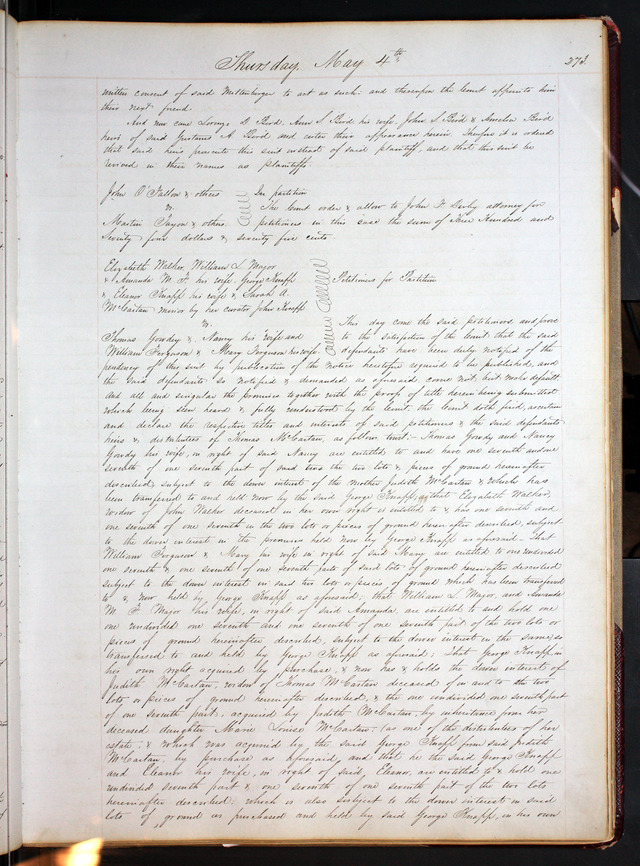 Thursday, May 4th
273.
written consent of said Miltenberger to act as such and thereupon the Court appoints him
their next friend.
And now come Lorenzo D. Bird, Ann S. Bird his wife, John S. Bird & Amelia Bird
heirs of said Gustavus A. Bird and enter their appearance herein. Therefore it is ordered
that said heirs prosecute this suit instead of said plaintiff, and that this suit be
revived in their names as plaintiffs.
John O'Fallon & others In partition
vs. The Court order & allow to John F. Darby attorney for
Martin & others petitioners in this case the sum of Hundred and
Seventy four dollars & seventy five cents
Elizabeth Walker, William L. Major
& Amanda M. F. his wife, George Knapp Petitioners for Partition
& Eleanor Knapp his wife & Sarah A.
McCartan minor by her curator John Knapp
vs. This day come the said petitioners and prove
Thomas Gowdy & Nancy his wife and to the satisfaction of the Court that the said
William Ferguson & Mary Ferguson his wife. defendants have been duly notified of the
pendency of this suit by publication of the notice heretofore required to be published, and
the said defendants so notified & demanded as aforesaid come not, but make default.
And all and singular the premises together with the proofs of title herein being submitted
which being seen heard & fully understood by the Court, the Court doth find, ascertain
and declare the respective titles and interests of said petitioners & the said defendants
heirs & distributees of Thomas McCartan, as follow towit:- Thomas Gowdy and Nancy
Gowdy his wife, in right of said Nancy are entitled to and have one seventh and one
seventh of one seventh part of said two lots & pieces of ground hereinafter
described, subject to the dower interest of the mother Judith McCartan & which has
been transferred to and held now by the said George Knapp, that Elizabeth Walker,
widow of John Walker deceased in her own right is entitled to & has one seventh and
one seventh of one seventh in the two lots or pieces of ground hereinafter described, subject
to the dower interest in the premises held now by George Knapp as aforesaid. That
William Ferguson & Mary his wife in right of said Mary are entitled to one undivided
one seventh & one seventh of one seventh parts of said lots of ground hereinafter described
subject to the dower interest in said two lots or pieces of ground which has been transferred
to & now held by George Knapp as aforesaid; that William L. Major, and Amanda
M. F. Major his wife, in right of said Amanda, are entitled to and hold one
one undivided one seventh and one seventh of one seventh part of the two lots or
pieces of ground hereinafter described, subject to the dower interest in the same, so
transferred to and held by George Knapp as aforesaid. That George Knapp, in
his own right acquired by purchase, & now has & holds the dower interest of
Judith McCartan, widow of Thomas McCartan, deceased of in and to the two
lots, or pieces of ground hereinafter described, & the one undivided one seventh part
of one seventh part, acquired by Judith McCartan, by inheritance from her
deceased daughter Marie Louise McCartan, (as one of the distributees of her
estate, & which was acquired by the said George Knapp from said Judith
McCartan, by purchase as aforesaid, and that he the said George Knapp
and Eleanor his wife, in right of said Eleanor, are entitled to & hold one
undivided seventh part & one seventh of one seventh part of the two lots
hereinafter described: which is also subject to the dower interest in said
lots of ground as purchased and held by said George Knapp, in his own